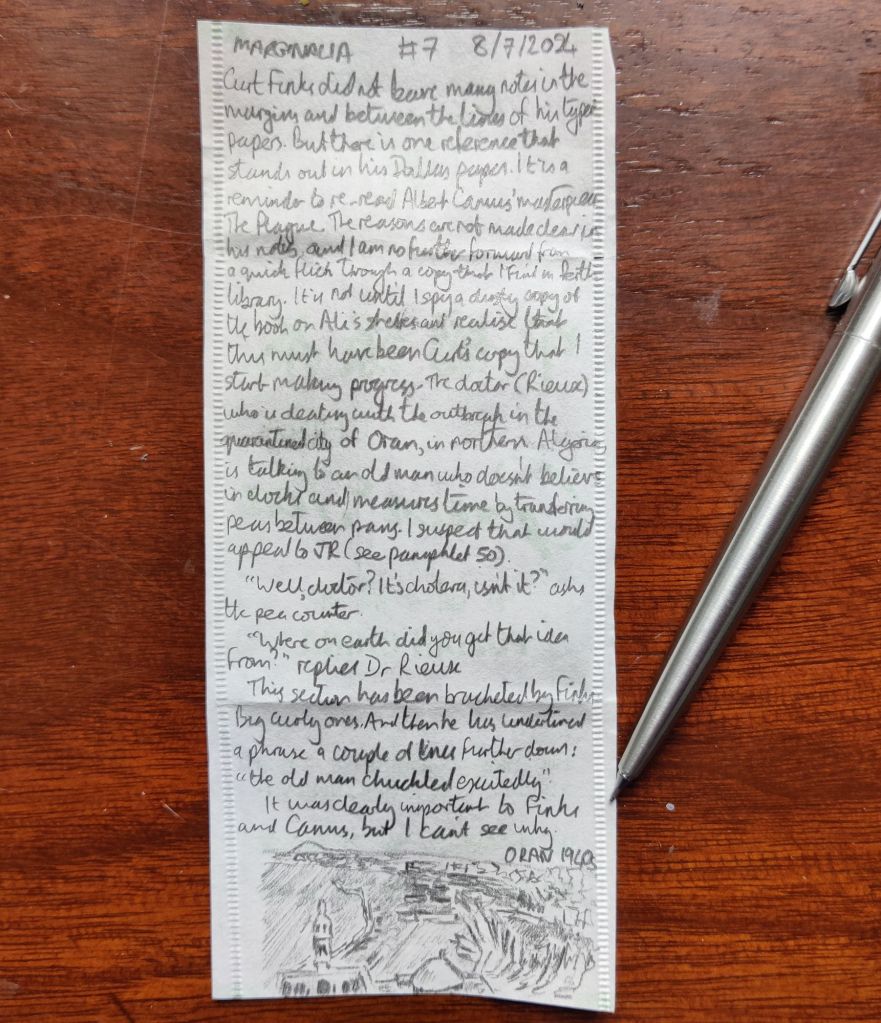 MARGINALIA #7 8/7/2024
Curt Finks did not leave many notes in the
margins and between the lines of his typed
papers. But there is one reference that
stands out in his Dallas paper. It is a
reminder to re-read Albert Camus' masterpiece
The Plague. The reasons are not made clear in
his notes, and I am no further forward from
a quick flick through a copy that I find in Perth
library. It is not until I spy a dusty copy of
the book on Ali's shelves and realise that
this must have been Curt's copy that I
start making progress. The doctor (Rieux)
who is dealing with the outbreak in the
quarantined city of Oran, in northern Algeria,
is talking to an old man who doesn't believe
in clocks and measures time by transferring
peas between pans. I suspect that would
appeal to JR (see pamphlet 50).
"Well, doctor? It's cholera, isn't it?" asks
the pea counter.
"Where on earth did you get that idea
from?" replies Dr Rieux
This section has been bracketed by Finks
Big curly ones. And then he has underlined
a phrase a couple of lines further down:
"the old man chuckled excitedly".
It was clearly important to Finks
and Camus, but I can't see why.
ORAN 1940s